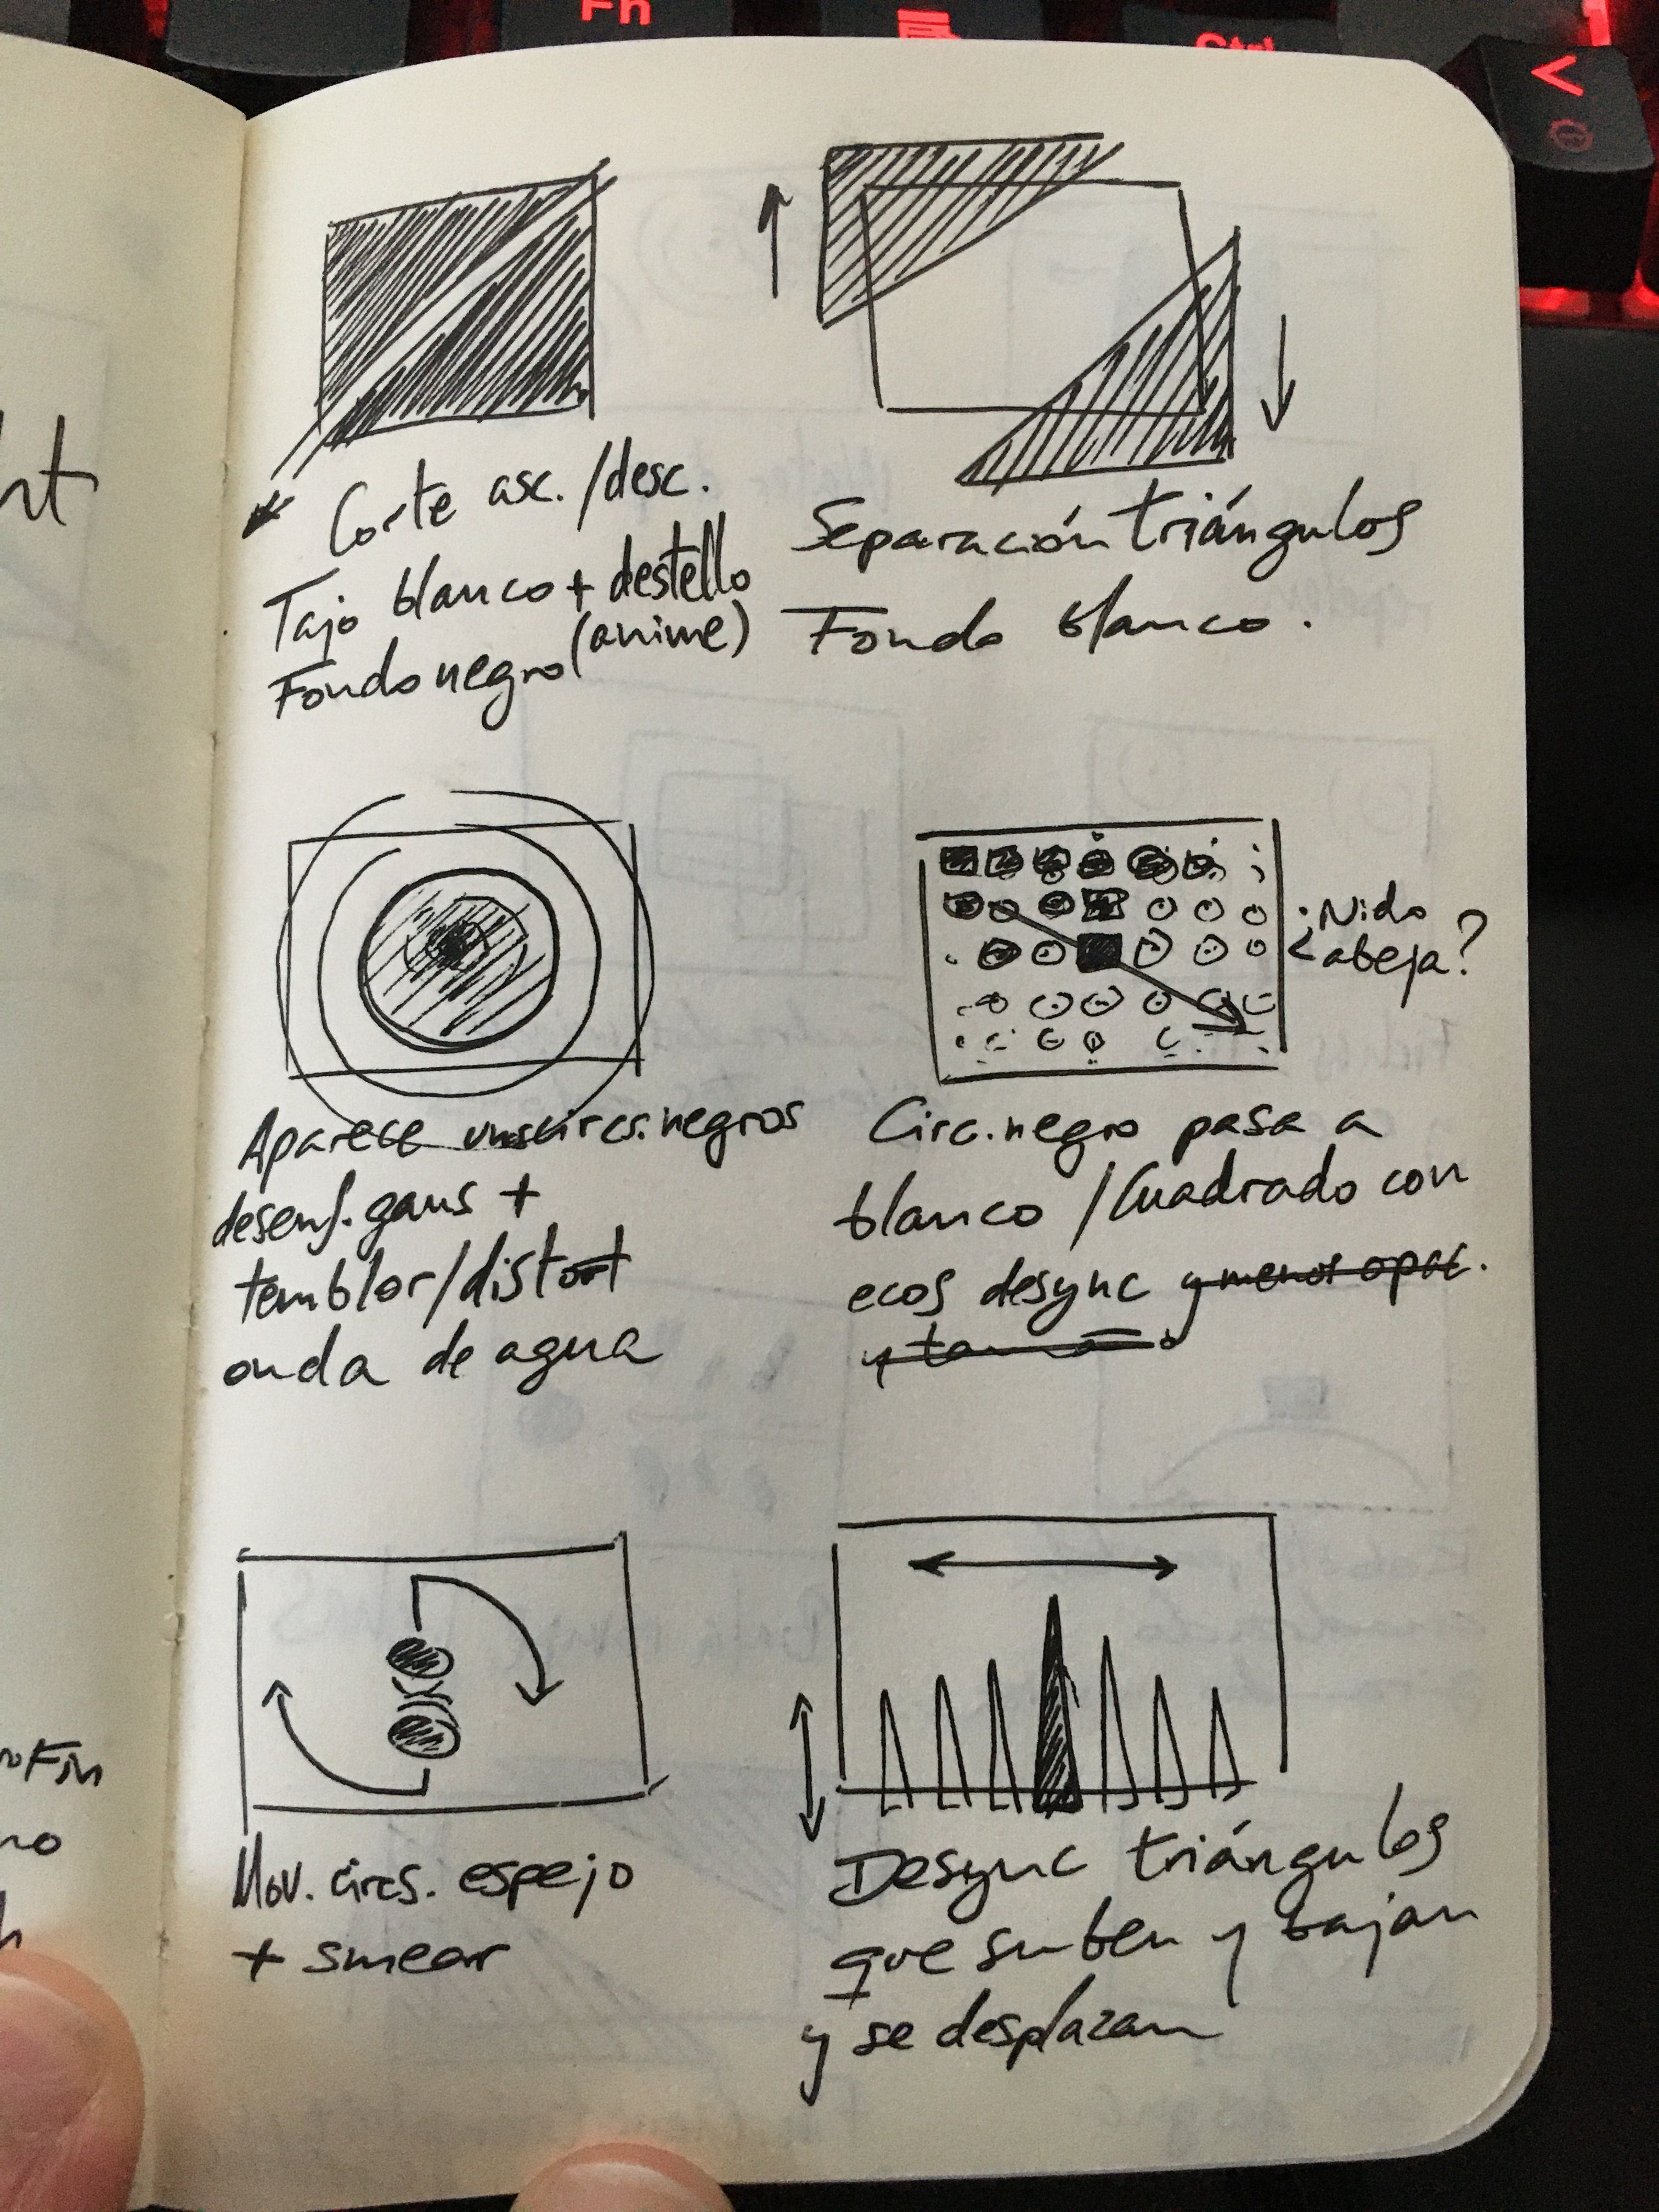 Fn
Ctrl
<
Corte asc. / desc.
Tajo blanco + destello
(anime)
Fondo negro
Separación triángulos
Fondo blanco.
Aparece circs. negros
desenf. gaus +
temblor/distort
onda de agua
Nido
abeja?
Circ. negro pasa a
blanco / Cuadrado con
ecos desync y menos opac.
y tamaño
Mov. circs. espejo
+ smear
Desync triángulos
que suben y bajan
y se desplazan